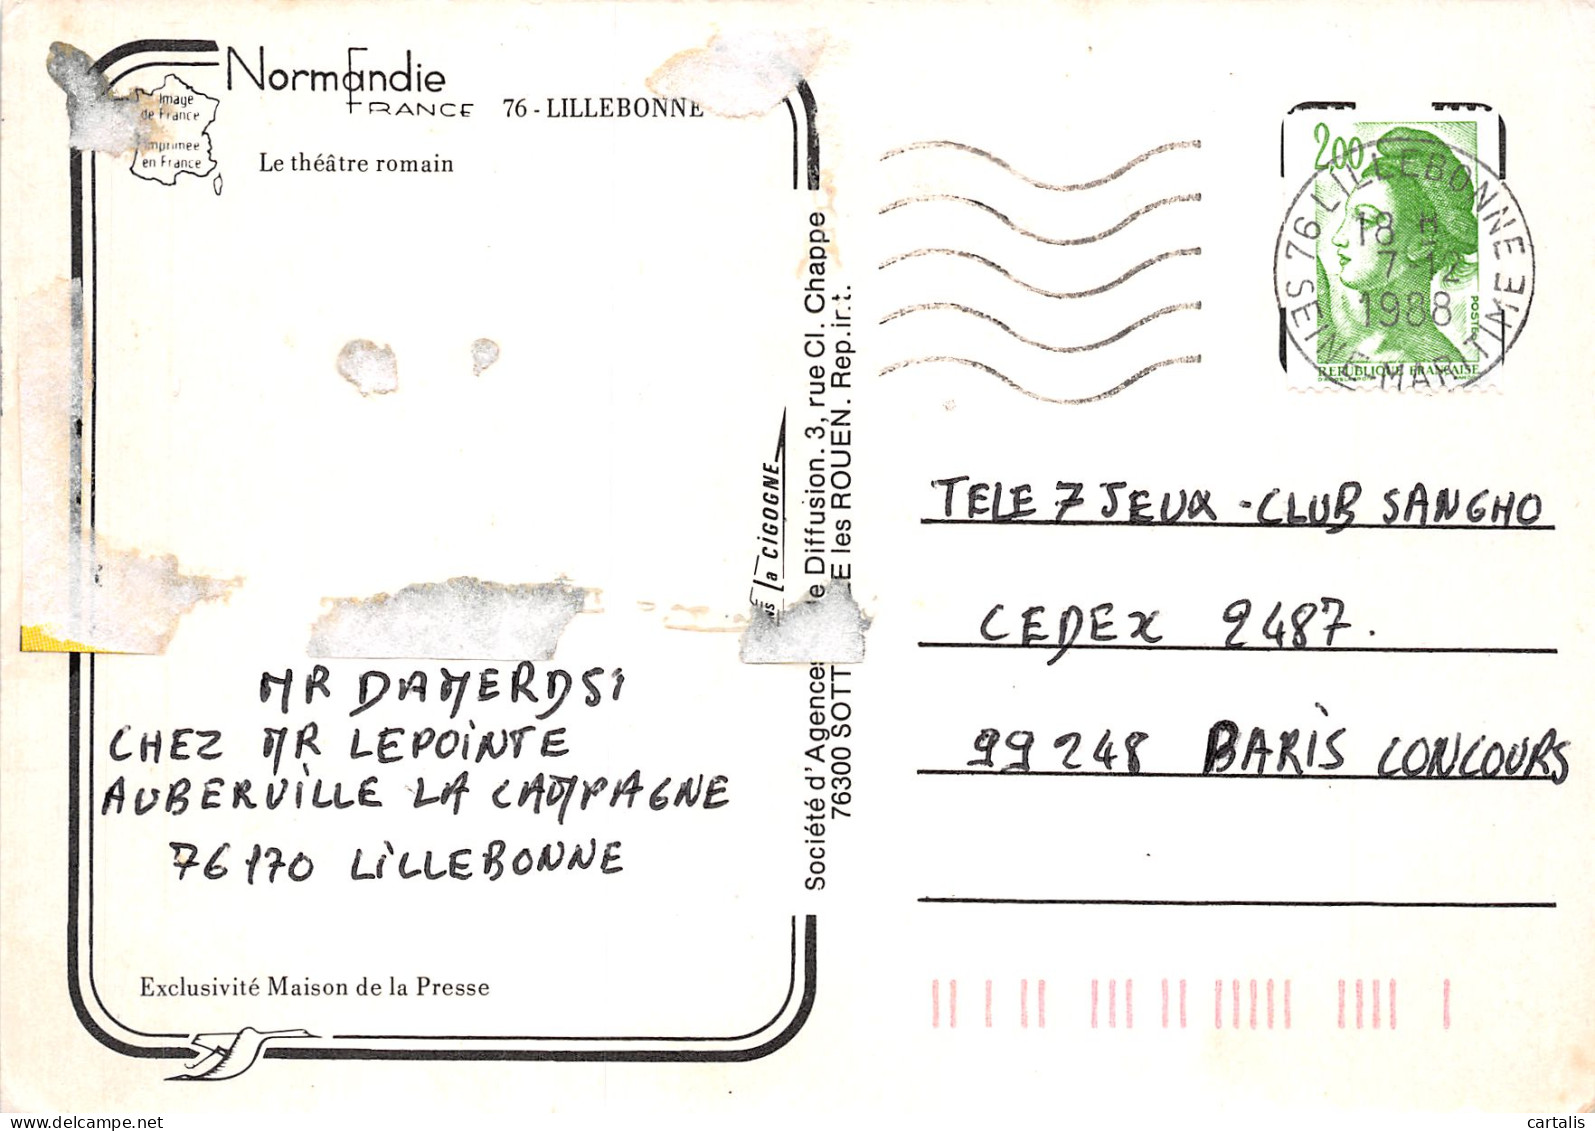 Normandie
FRANCE
76 - LILLEBONNE
Image
de France
Imprimée
en France
Le théâtre romain
MR DAMERDSI
CHEZ MR LEPOINTE
AUBERVILLE LA CAMPAGNE
76170 LILLEBONNE
Exclusivité Maison de la Presse
La CIGOGNE
Société d'Agences e Diffusion. 3, rue Cl. Chappe
76300 SOTT E les ROUEN. Rep.ir.t.
2,00
POSTES
REPUBLIQUE FRANÇAISE
76 LILLEBONNE
18 H
7-12
1988
SEINE-MARITIME
TELE 7 JEUX - CLUB SANGHO
CEDEX 2487.
99248 BARIS CONCOURS
cartalis